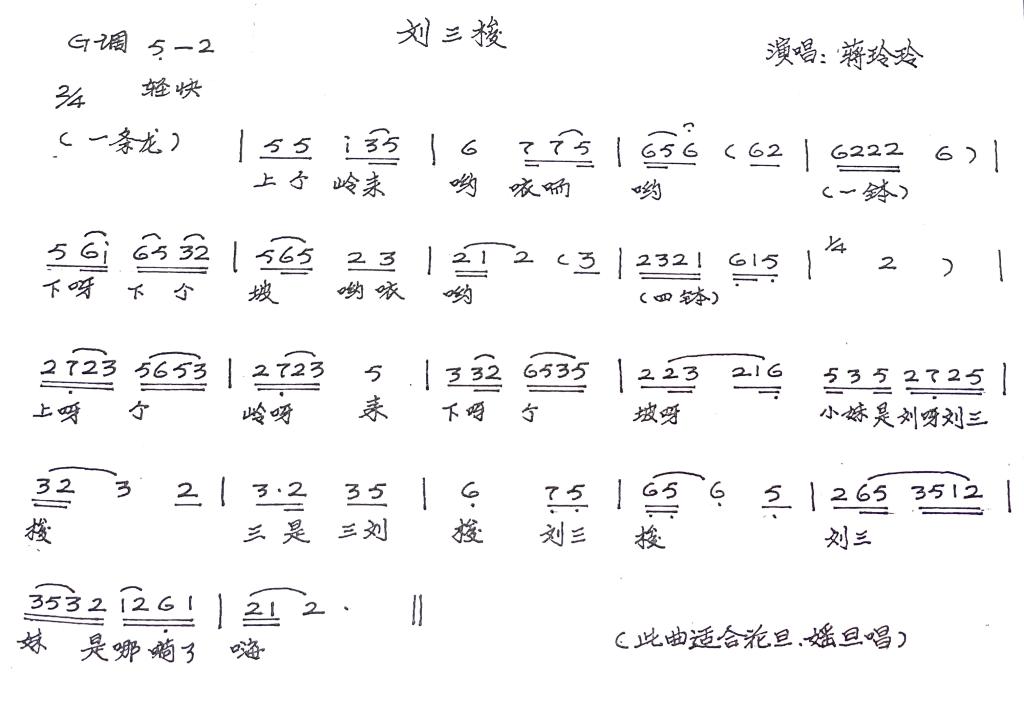 刘三梭
G调 5—2
演唱:蒋玲玲
2/4 轻快
(一条龙) | 5 5 i 3 5 | 6 7 7 5 | 6 5 6 (6 2 | 6 2 2 2 6) |
上个 岭来 哟 咳呐 哟 (一钵)
5 6 i 6 5 3 2 | 5 6 5 2 3 | 2 1 2 (3 | 2 3 2 1 6 1 5 | 1/4 2 ) |
下呀 下 个 坡 哟咳 哟 (四钵)
2 7 2 3 5 6 5 3 | 2 7 2 3 5 | 3 3 2 6 5 3 5 | 2 2 3 2 1 6 5 3 5 2 7 2 5 |
上呀 个 岭呀 来 下呀 个 坡呀 小妹是刘呀刘三
3 2 3 2 | 3 · 2 3 5 | 6 7 5 | 6 5 6 5 | 2 6 5 3 5 1 2 |
梭 三是 三刘 梭 刘三 梭 刘三
3 5 3 2 i 2 6 1 | 2 1 2 · ‖
妹 是哪 了 嗨
(此曲适合花旦、媱旦唱)